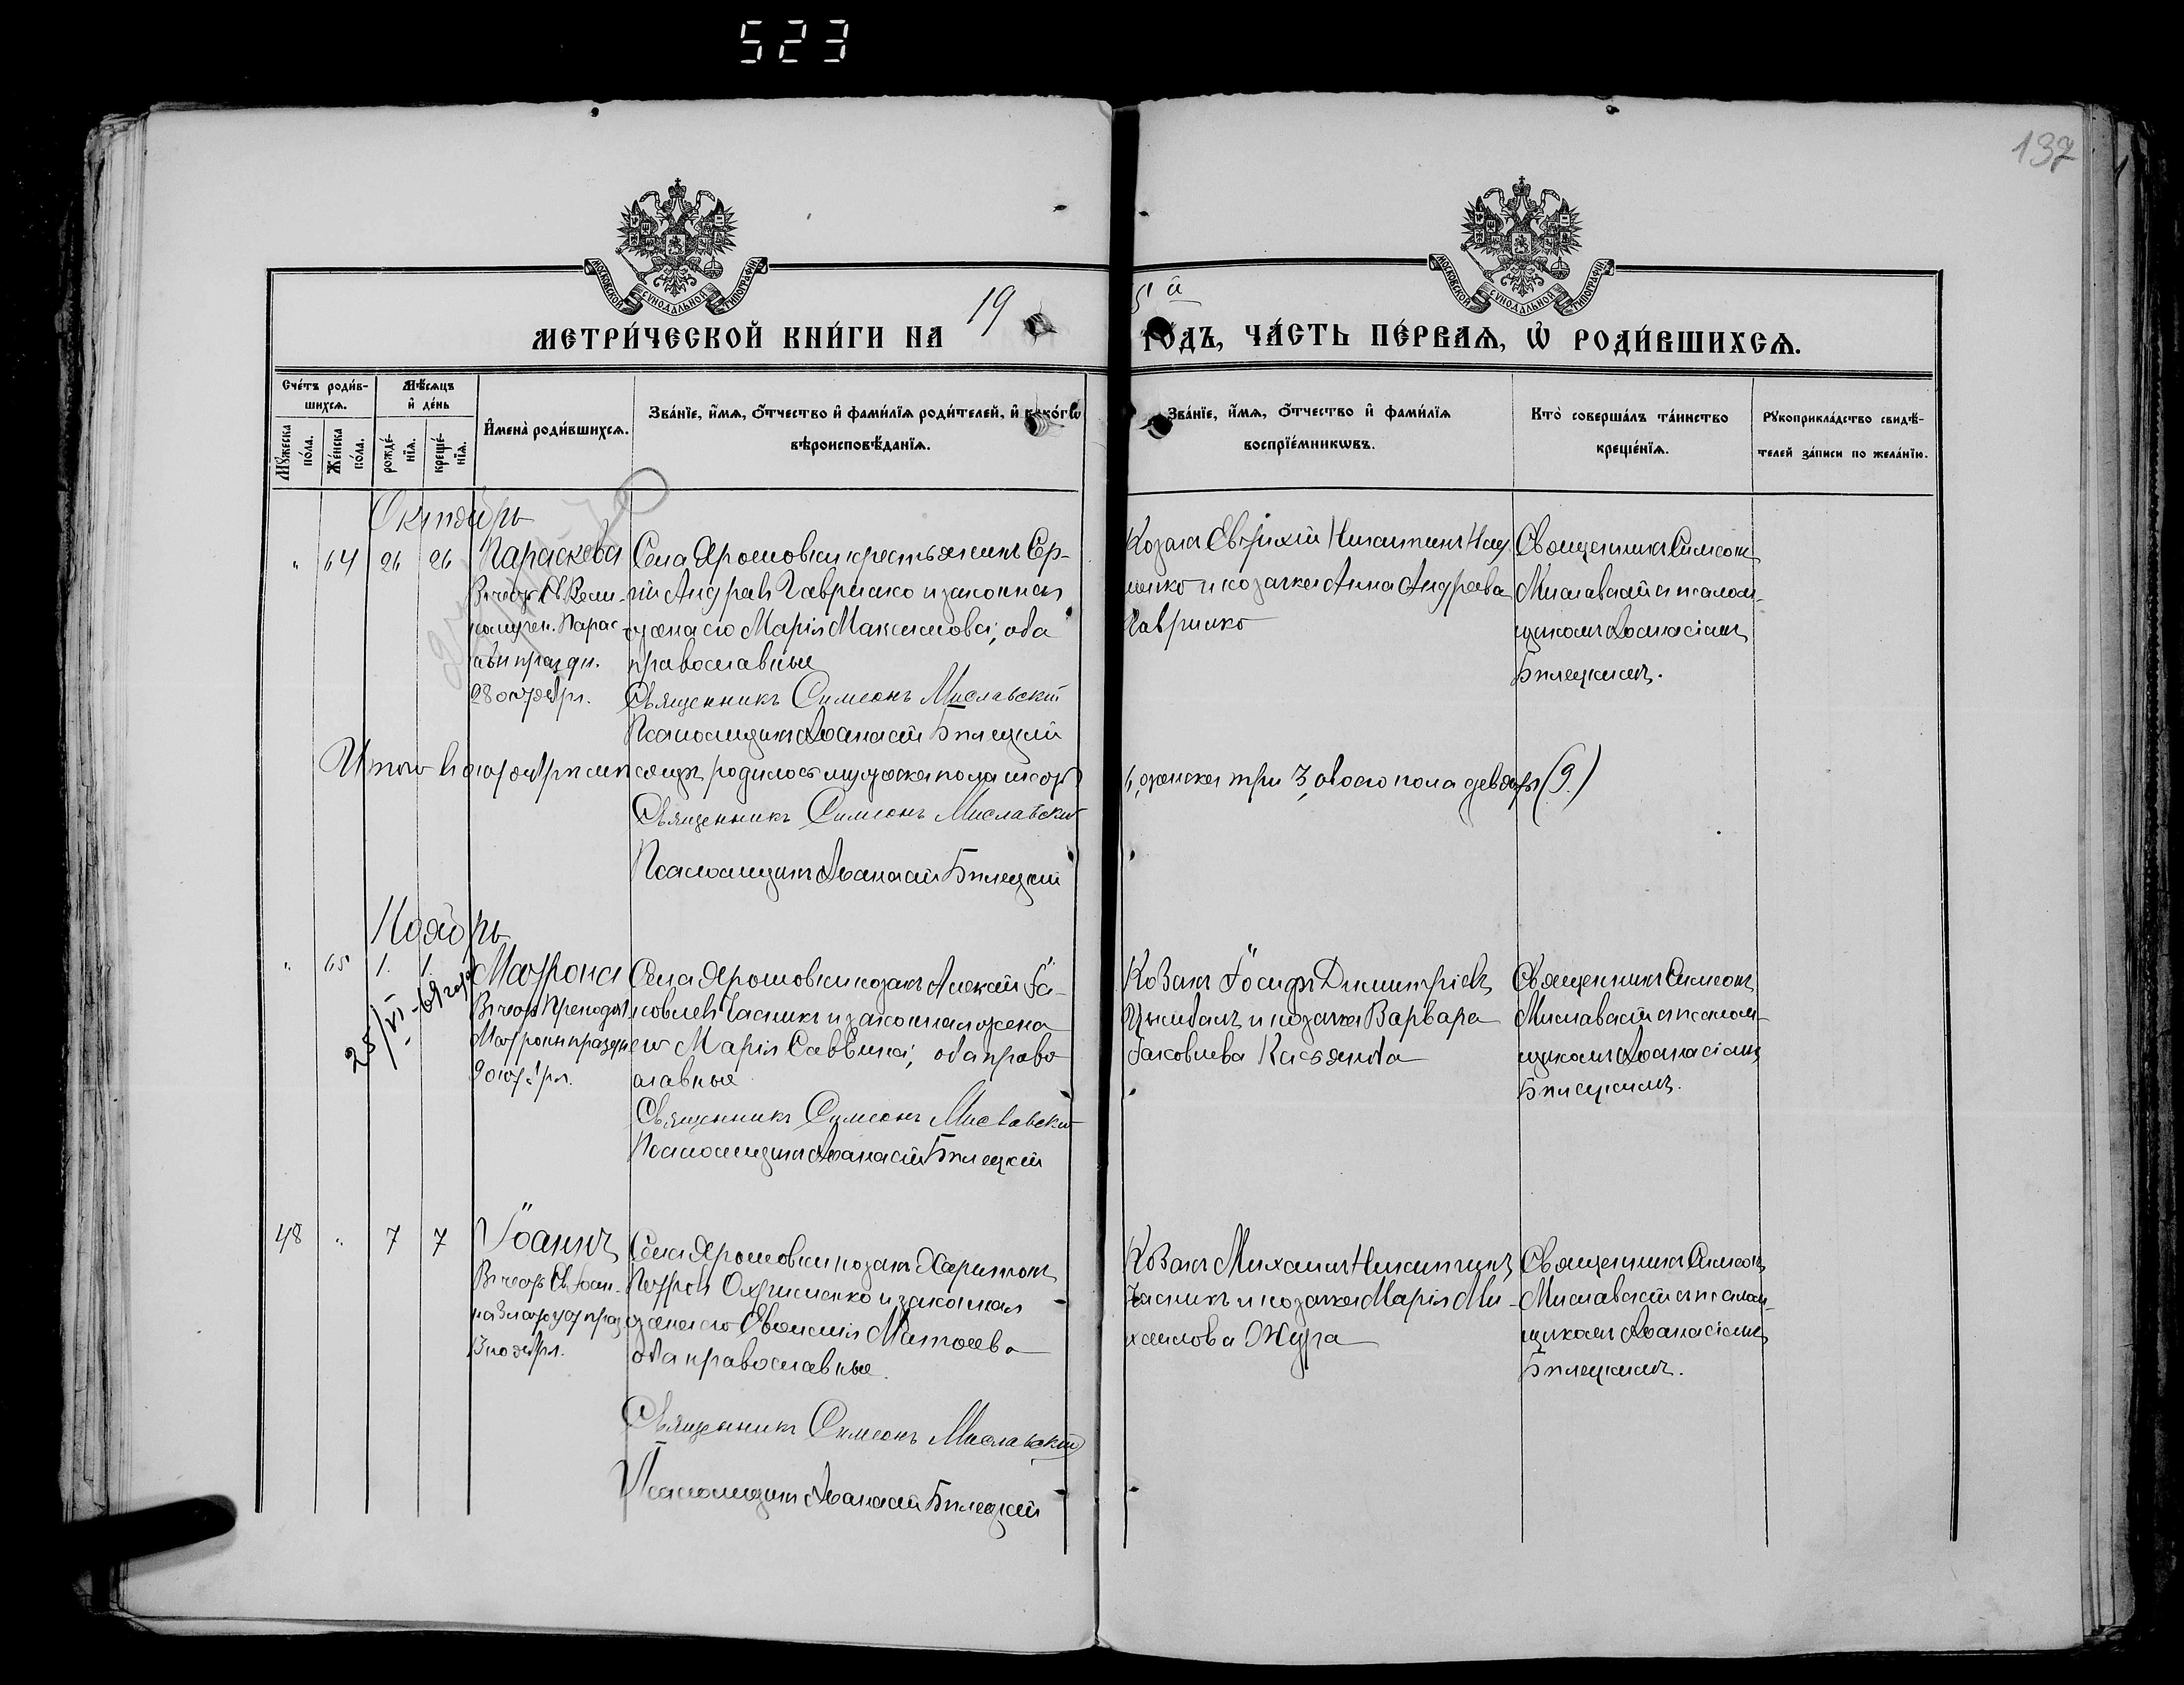 523
137
МОСКОВСКОЙ СѴНОДАЛЬНОЙ ТИПОГРАФІИ
МОСКОВСКОЙ СѴНОДАЛЬНОЙ ТИПОГРАФІИ
МЕТРИ́ЧЕСКОЙ КНИ́ГИ НА 19
5 й ГО́ДЪ, ЧА́СТЬ ПЕ́РВАѦ, Ѡ҆ РОДИ́ВШИХСѦ.
Счéтъ роди́в-
шихсѧ.
Мѣ́сѧцъ
и҆ дéнь
Мꙋ́жеска
по́ла.
Жéнска
по́ла.
рождé-
нїѧ.
крещé-
нїѧ.
И҆менà роди́вшихсѧ.
Зва́нїе, и҆́мѧ, ѻ҆́тчество и҆ фами́лїѧ роди́телей, и҆ како́гѡ
вѣроисповѣ́данїѧ.
Зва́нїе, и҆́мѧ, ѻ҆́тчество и҆ фами́лїѧ
воспрїе́мникѡвъ.
Кто̀ соверша́лъ та́инство
креще́нїѧ.
Рꙋкоприкла́дство свидѣ́-
телей за́писи по жела́нїю.
Октябрь
" 64 26 26 Параскева
В честь Св. Вели-
комучен. Парас-
кевы праздн.
28 октября.
Села Ярошовки крестьянинъ Сер-
гій Андреевъ Гавришко и законная
жена его Марія Максимова, оба
православные
Священникъ Симеонъ Миславскій
Псаломщикъ Аѳанасій Бѣлецкій
Козакъ Евфихій Никитинъ Нау
менко и козачка Анна Андреева
Гавришко
Священникъ Симеонъ
Миславскій съ псалом-
щикомъ Аѳанасіемъ
Бѣлецкимъ.
Итого въ октябрѣ мѣсяцѣ родилось мужска пола шесть
6, женска три 3, обоего пола девять (9.)
Священникъ Симеонъ Миславскій
Псаломщикъ Аѳанасій Бѣлецкій
Ноябрь
" 65 1. 1. Матрона
25/VI-69 года
В честь Преподоб.
Матроны праздн
9 ноября.
Села Ярошовки козакъ Алексій Іа-
ковлевъ Часникъ и законная жена
его Марія Саввина, оба право
славные
Священникъ Симеонъ Миславскій
Псаломщикъ Аѳанасій Бѣлецкій
Козакъ Іосифъ Димитріевъ
Цимбалъ и козачка Варвара
Іаковлева Касьянова
Священникъ Симеонъ
Миславскій съ псалом-
щикомъ Аѳанасіемъ
Бѣлецкимъ.
48 " 7 7 Іоаннъ
В честь Св. Іоан-
на Златоуст. празд
13 ноября.
Села Ярошовки козакъ Харитонъ
Петровъ Охрименко и законная
жена его Евфимія Матѳеева
оба православные.
Священникъ Симеонъ Миславскій
Псаломщикъ Аѳанасій Бѣлецкій
Козакъ Михаилъ Никитинъ
Часникъ и козачка Марія Ми-
хаилова Жура
Священникъ Симеонъ
Миславскій съ псалом-
щикомъ Аѳанасіемъ
Бѣлецкимъ.